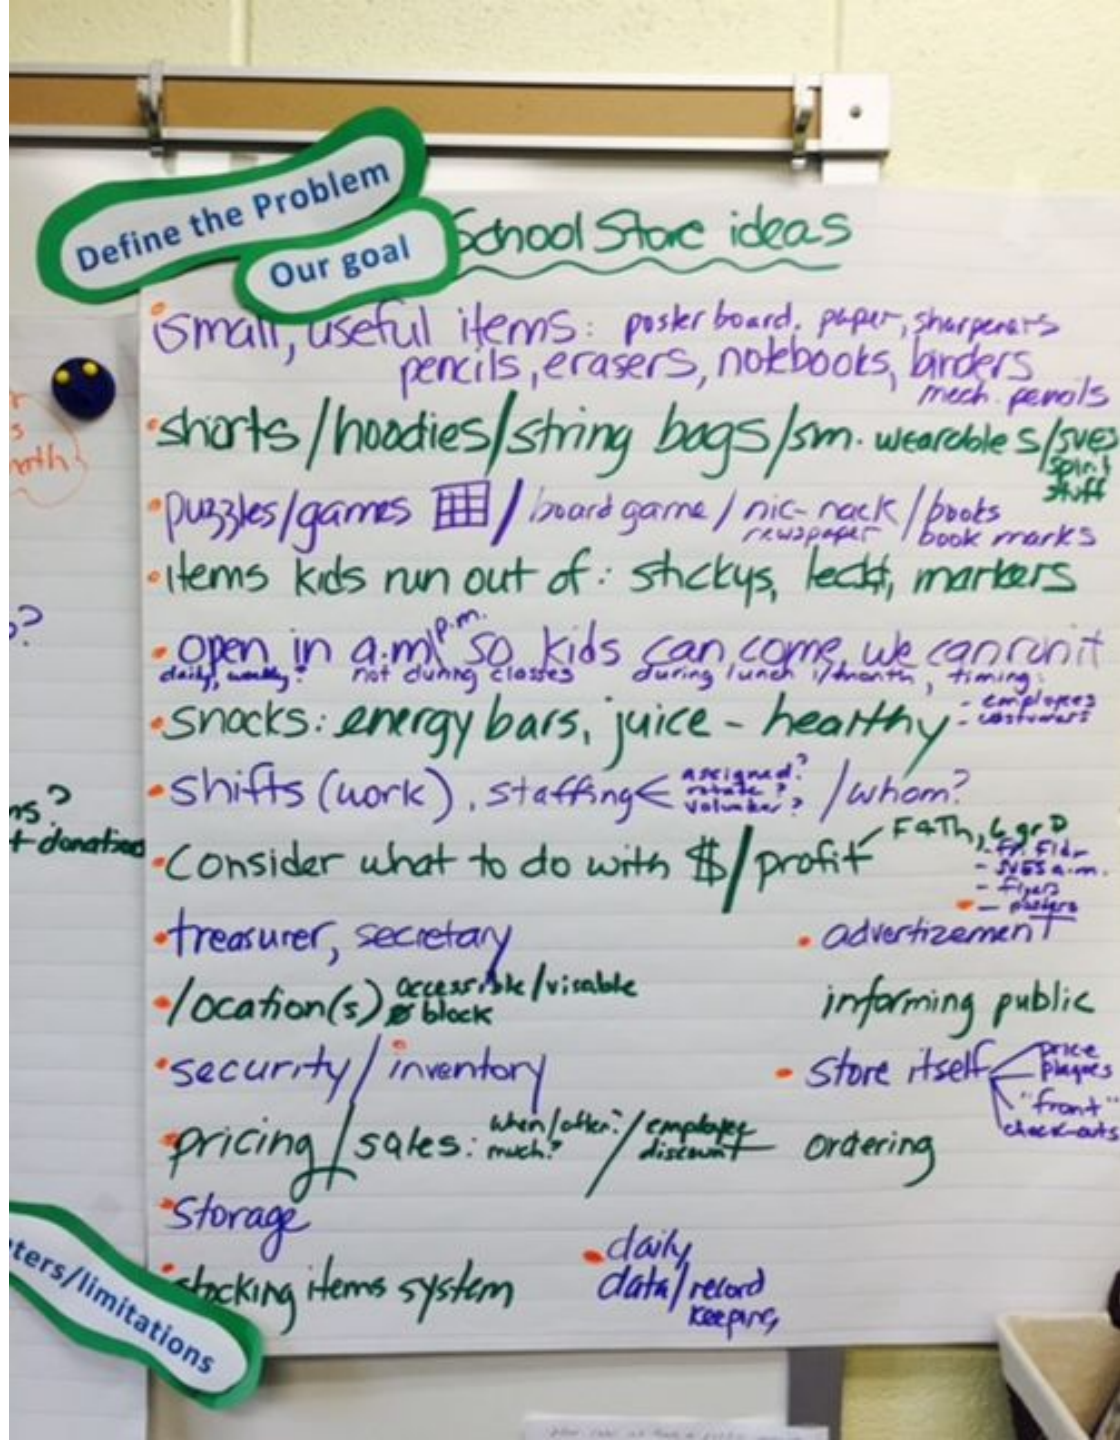 Define the Problem
Our goal
School Store ideas
small, useful items: poster board, paper, sharpeners
pencils, erasers, notebooks, binders
mech. pencils
shorts/hoodies/string bags/sm. wearables/SVES
spirit
stuff
puzzles/games / board game / nic-nack / books
newspaper book marks
items kids run out of: stickys, lead, markers
open in a.m./p.m. so kids can come, we can run it
daily, weekly? not during classes during lunch 1/month, timing:
- employees
- costumers
snacks: energy bars, juice - healthy
shifts (work), staffing < assigned? / whom?
rotate?
volunteer?
Consider what to do with $/profit
- SVES a.m.
- flyers
- posters
treasurer, secretary
advertizement
location(s) accessible/visable
block
informing public
security/inventory
store itself
price
plaques
"front"
check-outs
pricing/sales: when/often? / employee
much? discount
ordering
Storage
stocking items system
daily
data/record
keeping
ters/limitations
math?
ns?
+ donations